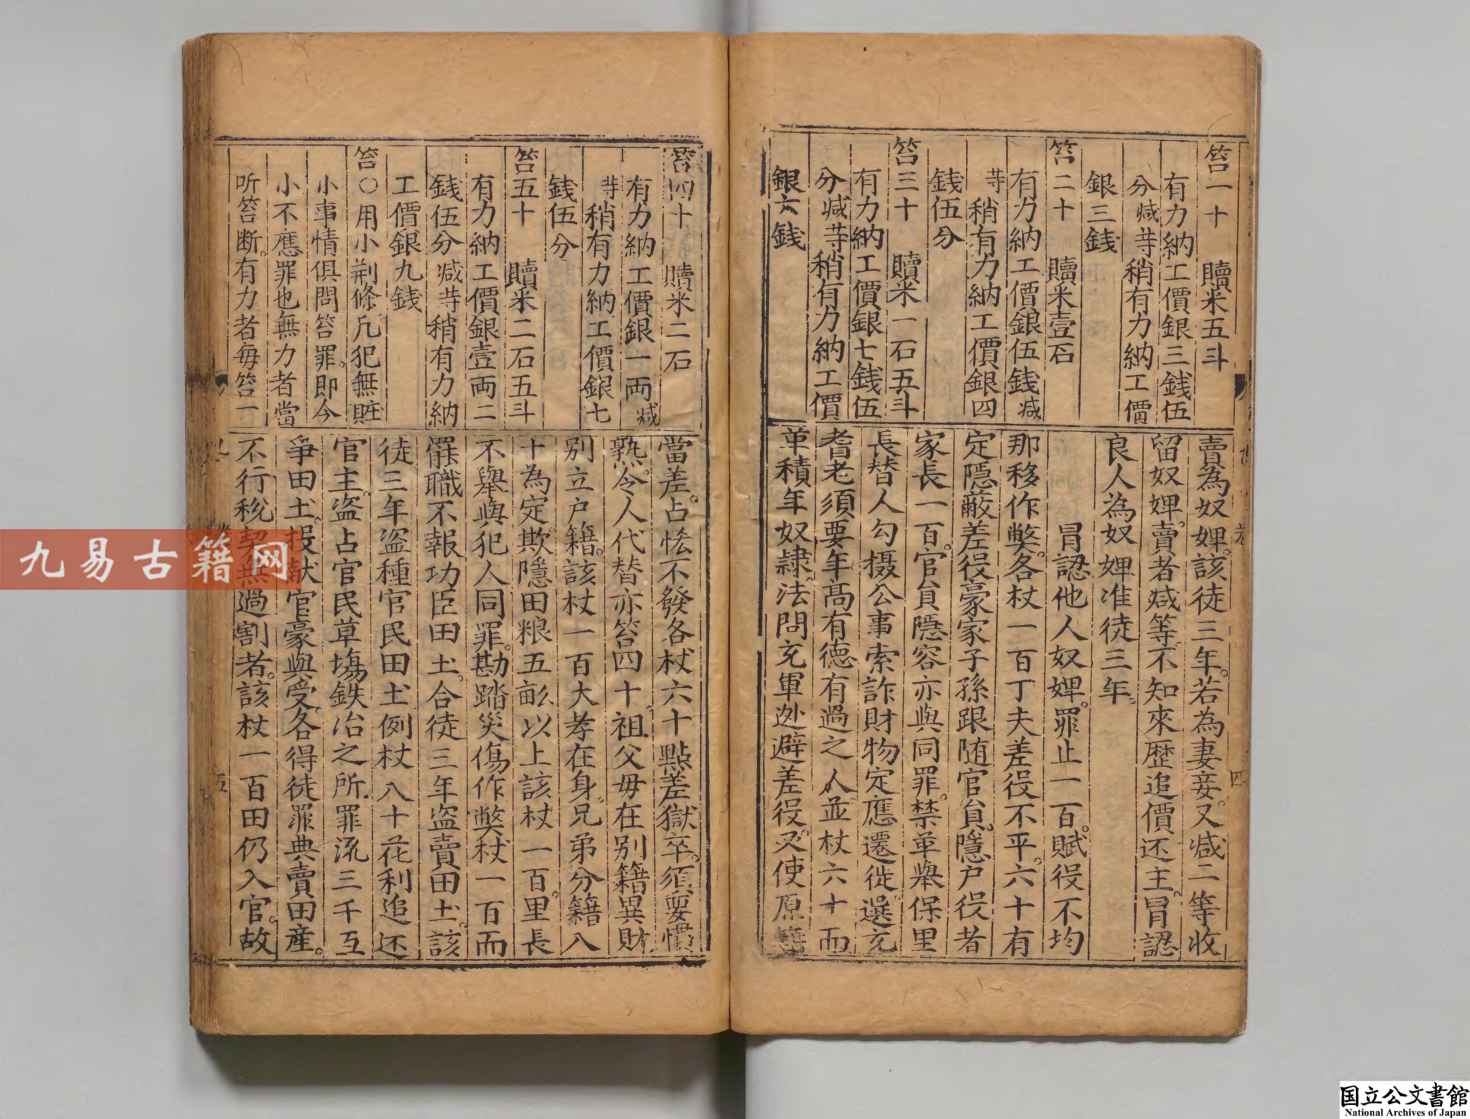 笞一十　贖米五斗
有力納工價銀三錢伍
分减等稍有力納工價
銀三錢
笞二十　贖米壹石
有力納工價銀伍錢减
等稍有力納工價銀四
錢伍分
笞三十　贖米一石五斗
有力納工價銀七錢伍
分减等稍有力納工價
銀六錢
賣為奴婢。該徒三年。若為妻妾。又减一等收
留奴婢。賣者减等。不知來歷追價还主。冐認
良人為奴婢准徒三年。
冐認他人奴婢。罪止一百。賦役不均
那移作弊。各杖一百丁夫差役不平。六十有
定隱蔽差役豪家子孫跟随官員。隱户役者
家長一百。官員隱容亦與同罪。禁革舉保里
長替人勾摄公事索詐財物定應遷徙。選充
耆老須要年髙有德有過之人並杖六十而
革積年奴隷。法問充軍迯避差役。又使原籍
笞四十　贖米二石
有力納工價銀一両减
等稍有力納工價銀七
錢伍分
笞五十　贖米二石五斗
有力納工價銀壹両二
錢伍分减等稍有力納
工價銀九錢
笞○用小荆條凡犯無賍
小事情俱問笞罪。即今
小不應罪也無力者當
听笞断。有力者每笞一
當差。占悋不發各杖六十點差獄卒。須要慣
熟。令人代替亦笞四十。祖父母在别籍異財
别立户籍。該杖一百大孝在身。兄弟分籍八
十為定欺隱田粮五畝以上該杖一百。里長
不舉與犯人同罪。勘踏災傷作弊杖一百而
罷職不報功臣田土。合徒三年盗賣田土。該
徒三年盗種官民田土例杖八十花利追还
官主。盗占官民草塲鉄冶之所。罪流三千互
爭田土。投献官豪與受各得徒罪典賣田產。
不行税契無過割者。該杖一百田仍入官。故
四
五
九易古籍网
国立公文書館
National Archives of Japan